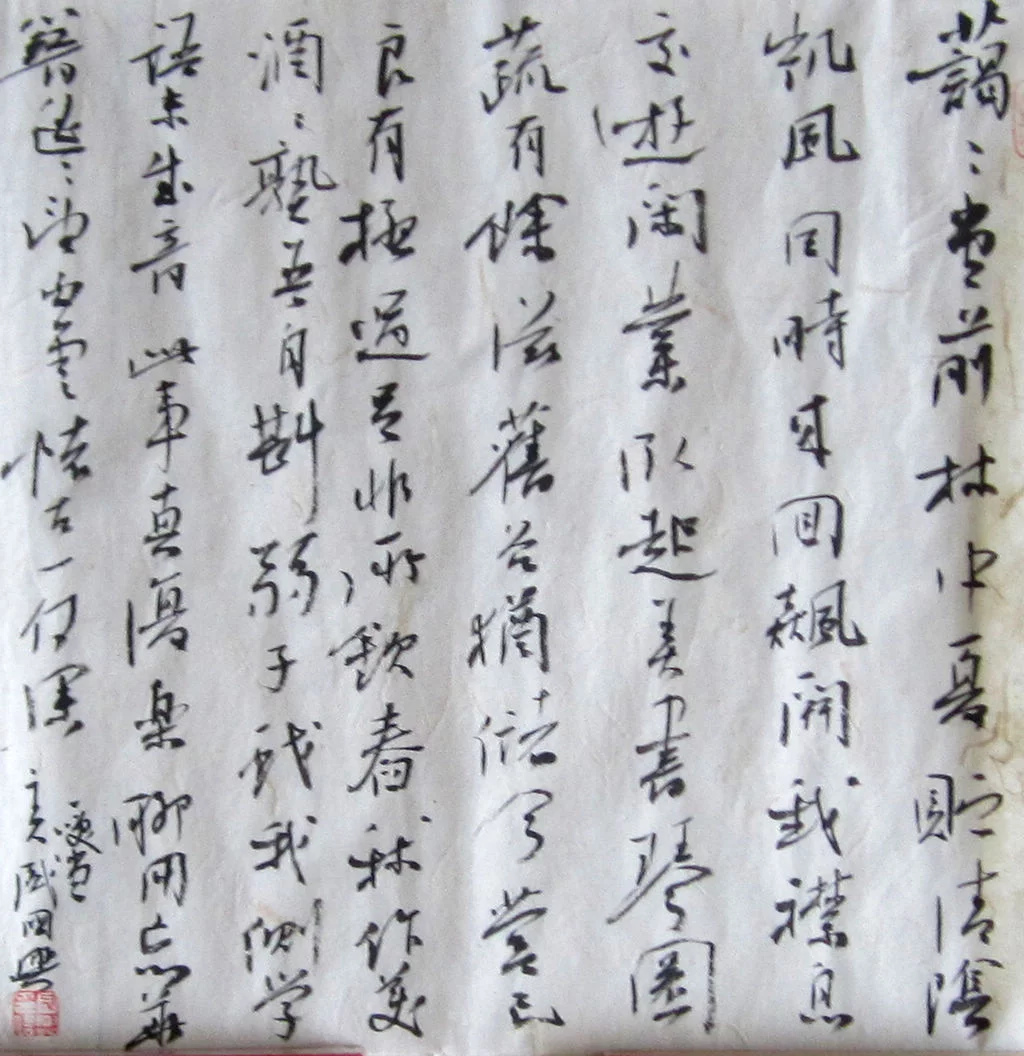 藹〻堂前林中夏貯清陰
凱風因時来回飆開我襟息
交遊閑業臥起弄書琴園
蔬有餘滋舊谷猶儲今營己
良有極過足非所欽舂秫作美
酒〻熟吾自斟弱子戲我側学
語未成音此事真復楽聊用忘華
簪遥〻望白雲懷古一何深